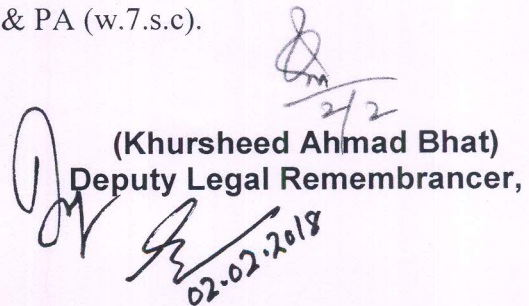 & PA (w.7.s.c).
2/2
(Khursheed Ahmad Bhat)
Deputy Legal Remembrancer,
02.02.2018